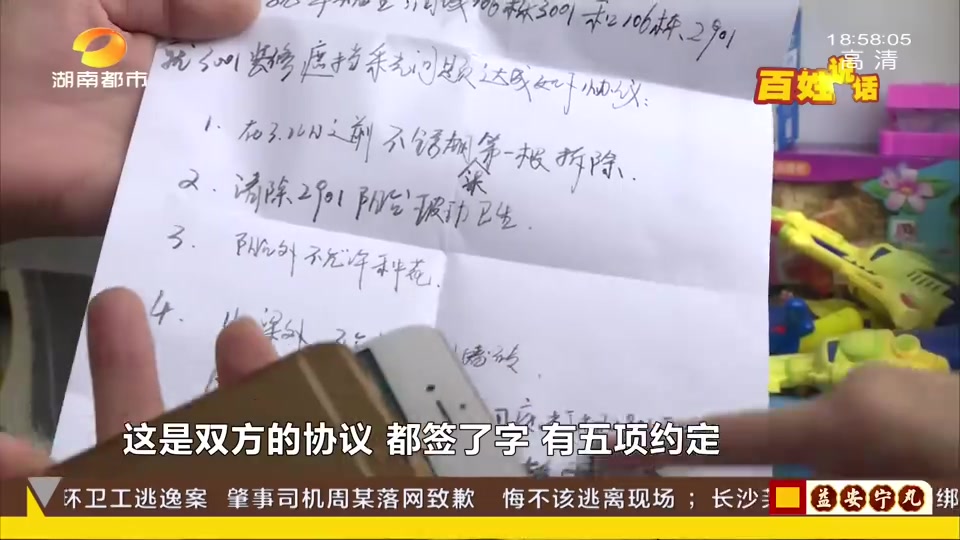 18:58:05
高清
湖南都市
百姓说话
106栋3001和106栋2901
就3001装修遮挡采光问题达成如下协议:
1. 在3. 之前不锈钢第一根拆除.
2. 清除2901阳台玻璃卫生.
3. 阳台外不允许种花.
4. 梁外
这是双方的协议 都签了字 有五项约定
环卫工逃逸案 肇事司机周某落网致歉 悔不该逃离现场 ; 长沙
益安宁丸
绑